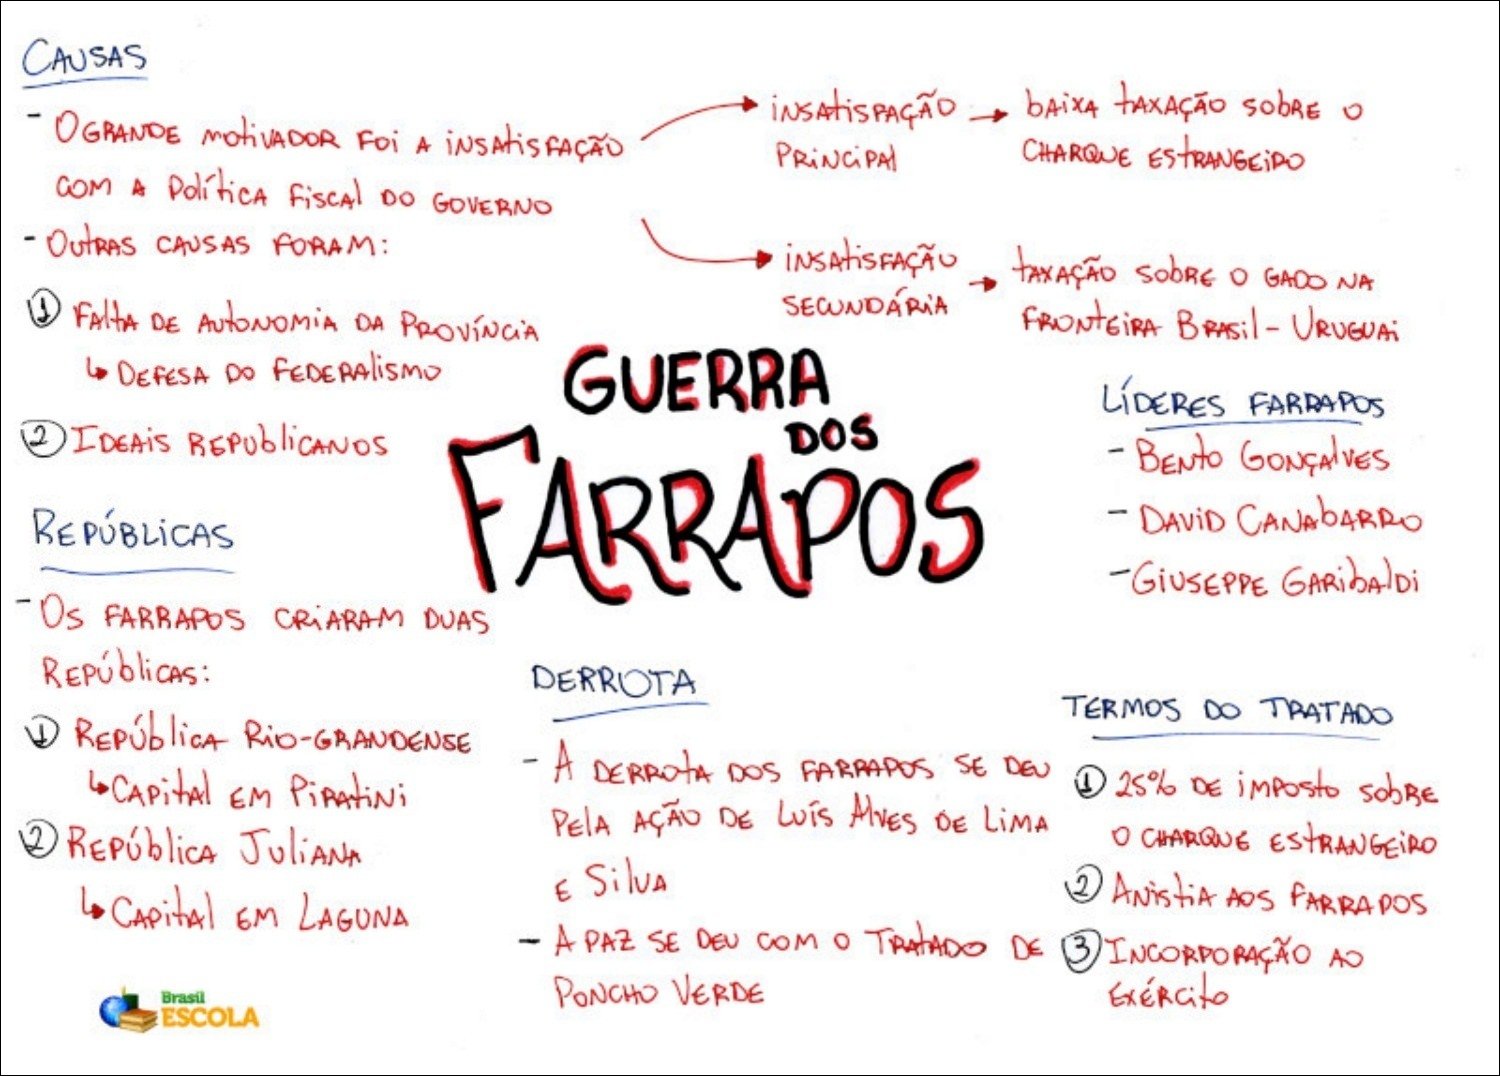 CAUSAS
- O GRANDE MOTIVADOR FOI A INSATISFAÇÃO
COM A POLÍTICA FISCAL DO GOVERNO
INSATISFAÇÃO
PRINCIPAL
BAIXA TAXAÇÃO SOBRE O
CHARQUE ESTRANGEIRO
INSATISFAÇÃO
SECUNDÁRIA
TAXAÇÃO SOBRE O GADO NA
FRONTEIRA BRASIL - URUGUAI
- OUTRAS CAUSAS FORAM:
1 FALTA DE AUTONOMIA DA PROVÍNCIA
↳ DEFESA DO FEDERALISMO
2 IDEAIS REPUBLICANOS
GUERRA
DOS
FARRAPOS
LÍDERES FARRAPOS
- BENTO GONÇALVES
- DAVID CANABARRO
- GIUSEPPE GARIBALDI
REPÚBLICAS
- OS FARRAPOS CRIARAM DUAS
REPÚBLICAS:
1 REPÚBLICA RIO-GRANDENSE
↳ CAPITAL EM PIRATINI
2 REPÚBLICA JULIANA
↳ CAPITAL EM LAGUNA
DERROTA
- A DERROTA DOS FARRAPOS SE DEU
PELA AÇÃO DE LUÍS ALVES DE LIMA
E SILVA
- A PAZ SE DEU COM O TRATADO DE
PONCHO VERDE
TERMOS DO TRATADO
1 25% DE IMPOSTO SOBRE
O CHARQUE ESTRANGEIRO
2 ANISTIA AOS FARRAPOS
3 INCORPORAÇÃO AO
EXÉRCITO
Brasil
ESCOLA